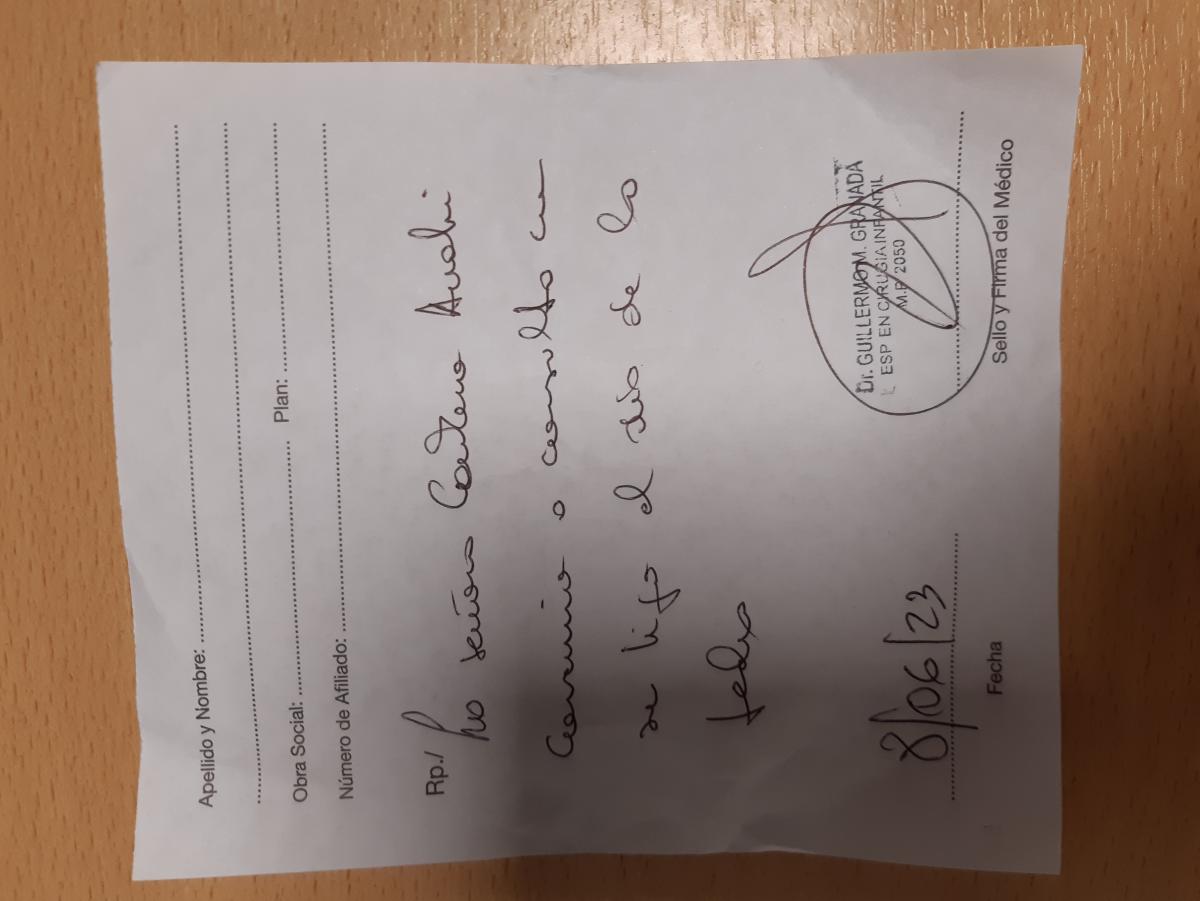 Apellido y Nombre: ........................................................................
................................................................................................
Obra Social: ...................................... Plan: ......................................
Número de Afiliado: ......................................................................
Rp./ La señora
concurrio a consulta con
su hijo el día de la
fecha
8/06/23
Fecha
Dr. GUILLERMO M. GRANADA
ESP EN CIRUGIA INFANTIL
M.P. 2050
Sello y Firma del Médico